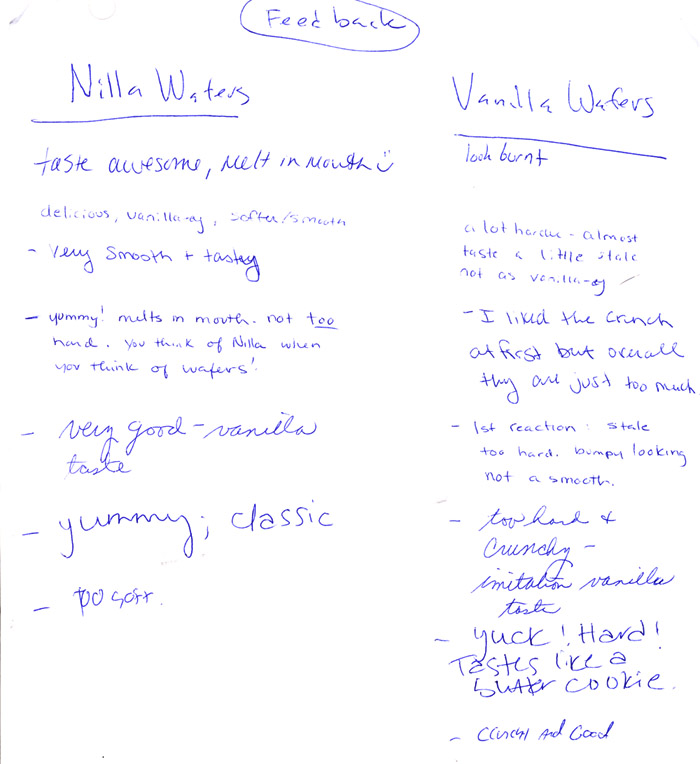 Feedback
Nilla Wafers
taste awesome, Melt in Mouth
delicious, vanilla-ey, softer/smooth
- Very Smooth + tastey
- yummy! melts in mouth. not too
hard. You think of Nilla when
you think of wafers!
- very good - vanilla
taste
- yummy; classic
- too soft.
Vanilla Wafers
look burnt
a lot harder - almost
taste a little stale
not as vanilla-ey
- I liked the crunch
at first but overall
they are just too much
- 1st reaction: stale
too hard. bumpy looking
not a smooth.
- too hard &
crunchy -
imitation vanilla
taste
- yuck! Hard!
Tastes like a
butter cookie.
- Crunchy And Good